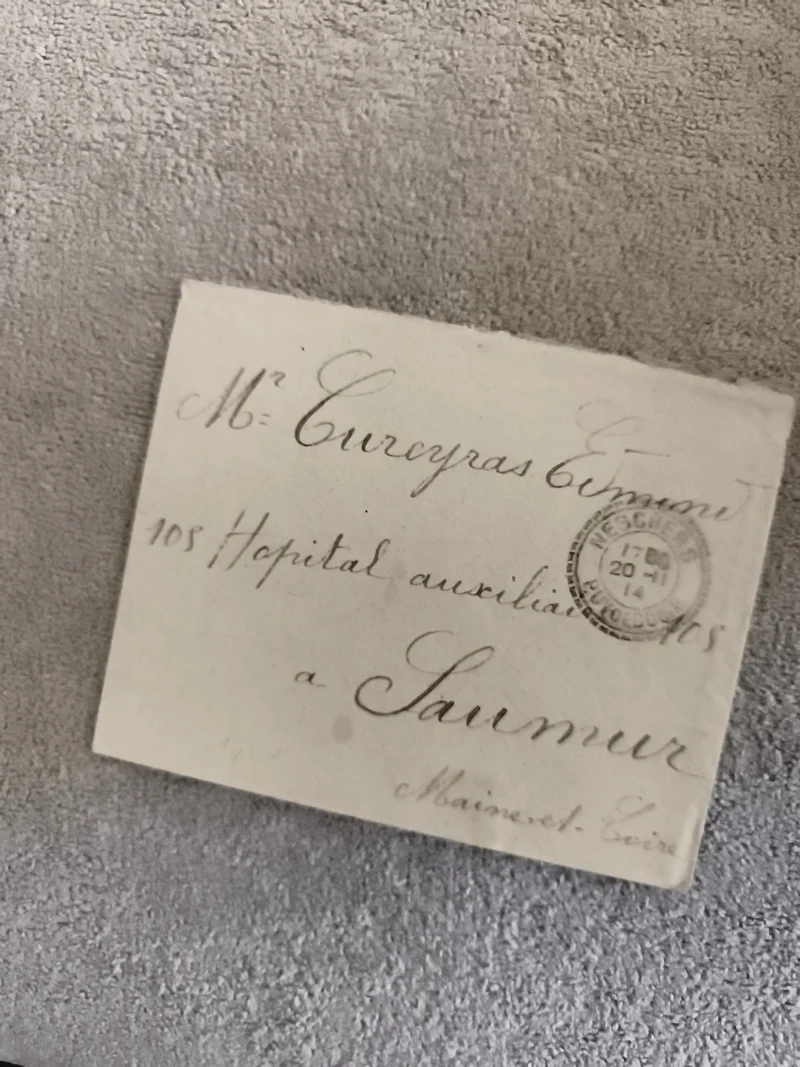 Mr Cureyras Edmond
105 Hopital auxiliaire 105
a Saumur
Maine-et-Loire
NESCHERS
17
20 -11
14
PUY-DE-DOME